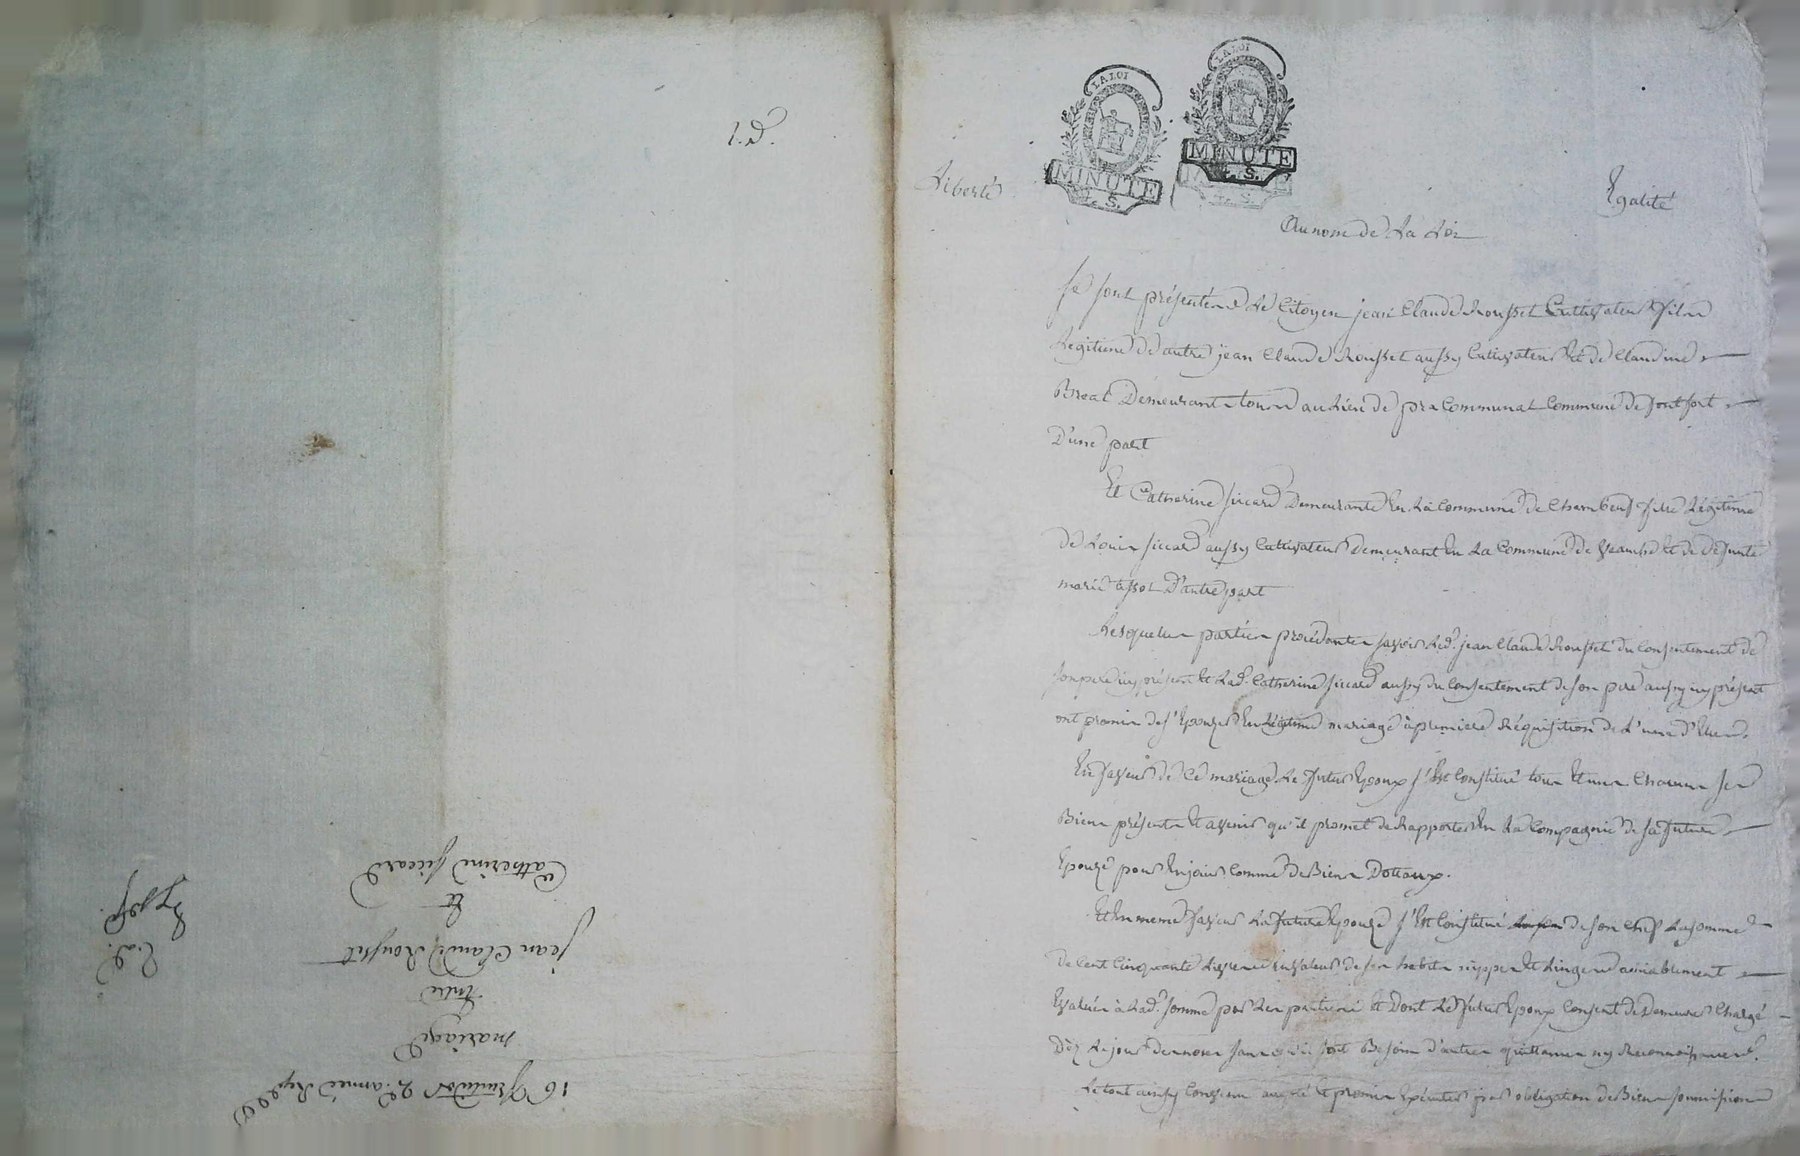 1.d.
LA LOI
MINUTE
4 S.
LA LOI
MINUTE
4 S.
Liberté
Egalité
Au nom de La Loi
Se sont présentés Le Citoyen jean Claude Rousset Cultivateur fils
Légitime de autre jean Claude Rousset aussy Cultivateur et de Claudine
Demeurants tous au Lieu de pra Communal Commune de fontfort
D'une part
Et Catherine siccard Demeurante En La Commune de Chambeuf fille Légitime
de Louis siccard aussy Cultivateur demeurant En La Commune de Veauche et de Défunte
marie D'autre part
Lesquelles parties procédantes savoir Led. jean Claude Rousset du Consentement de
son pere icy présent et Lad. Catherine siccard aussy du Consentement de son pere aussy icy présent
ont promis de s'Epouzer En Légitime mariage à premiere Réquisition de L'une d'Elles.
En faveur de Ce mariage Le futur Epoux s'Est Constitué tous et uns Chacuns ses
Biens présents et avenir qu'il promet de Rapporter En La Compagnie de sa future
Epouze pour En jouir Comme de Biens Dottaux.
Et En meme faveur La future Epouze s'Est Constitué de son Chef La somme
de Cent Cinquante Livres en valeur de ses habits nippes et Linges amiablement
Evalués à Lad. somme par Les parties et Dont Le futur Epoux Consent de Demeurer Chargé
Dèz Le jour des noces sans qu'il soit Besoin d'autres quittances ny Reconnoissances.
Le tout ainsy Convenu accepté et promis Exécuter par obligation de Biens soumission
16 fructidor 2e. année Rep
mariage
Entre
jean Claude Rousset
et
Catherine siccard